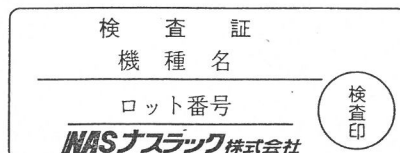 検査証
機種名
ロット番号
検査印
NASナスラック株式会社